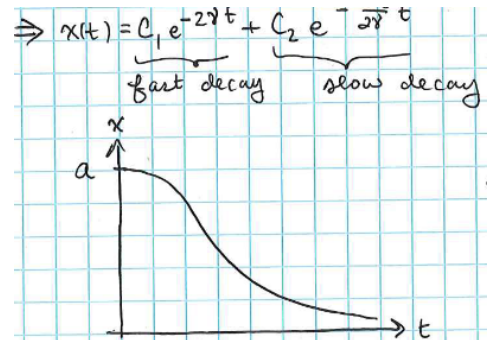 ⇒ x(t) = C₁ e^{-2γt} + C₂ e^{- /2γ t}
fast decay slow decay
x
a
t